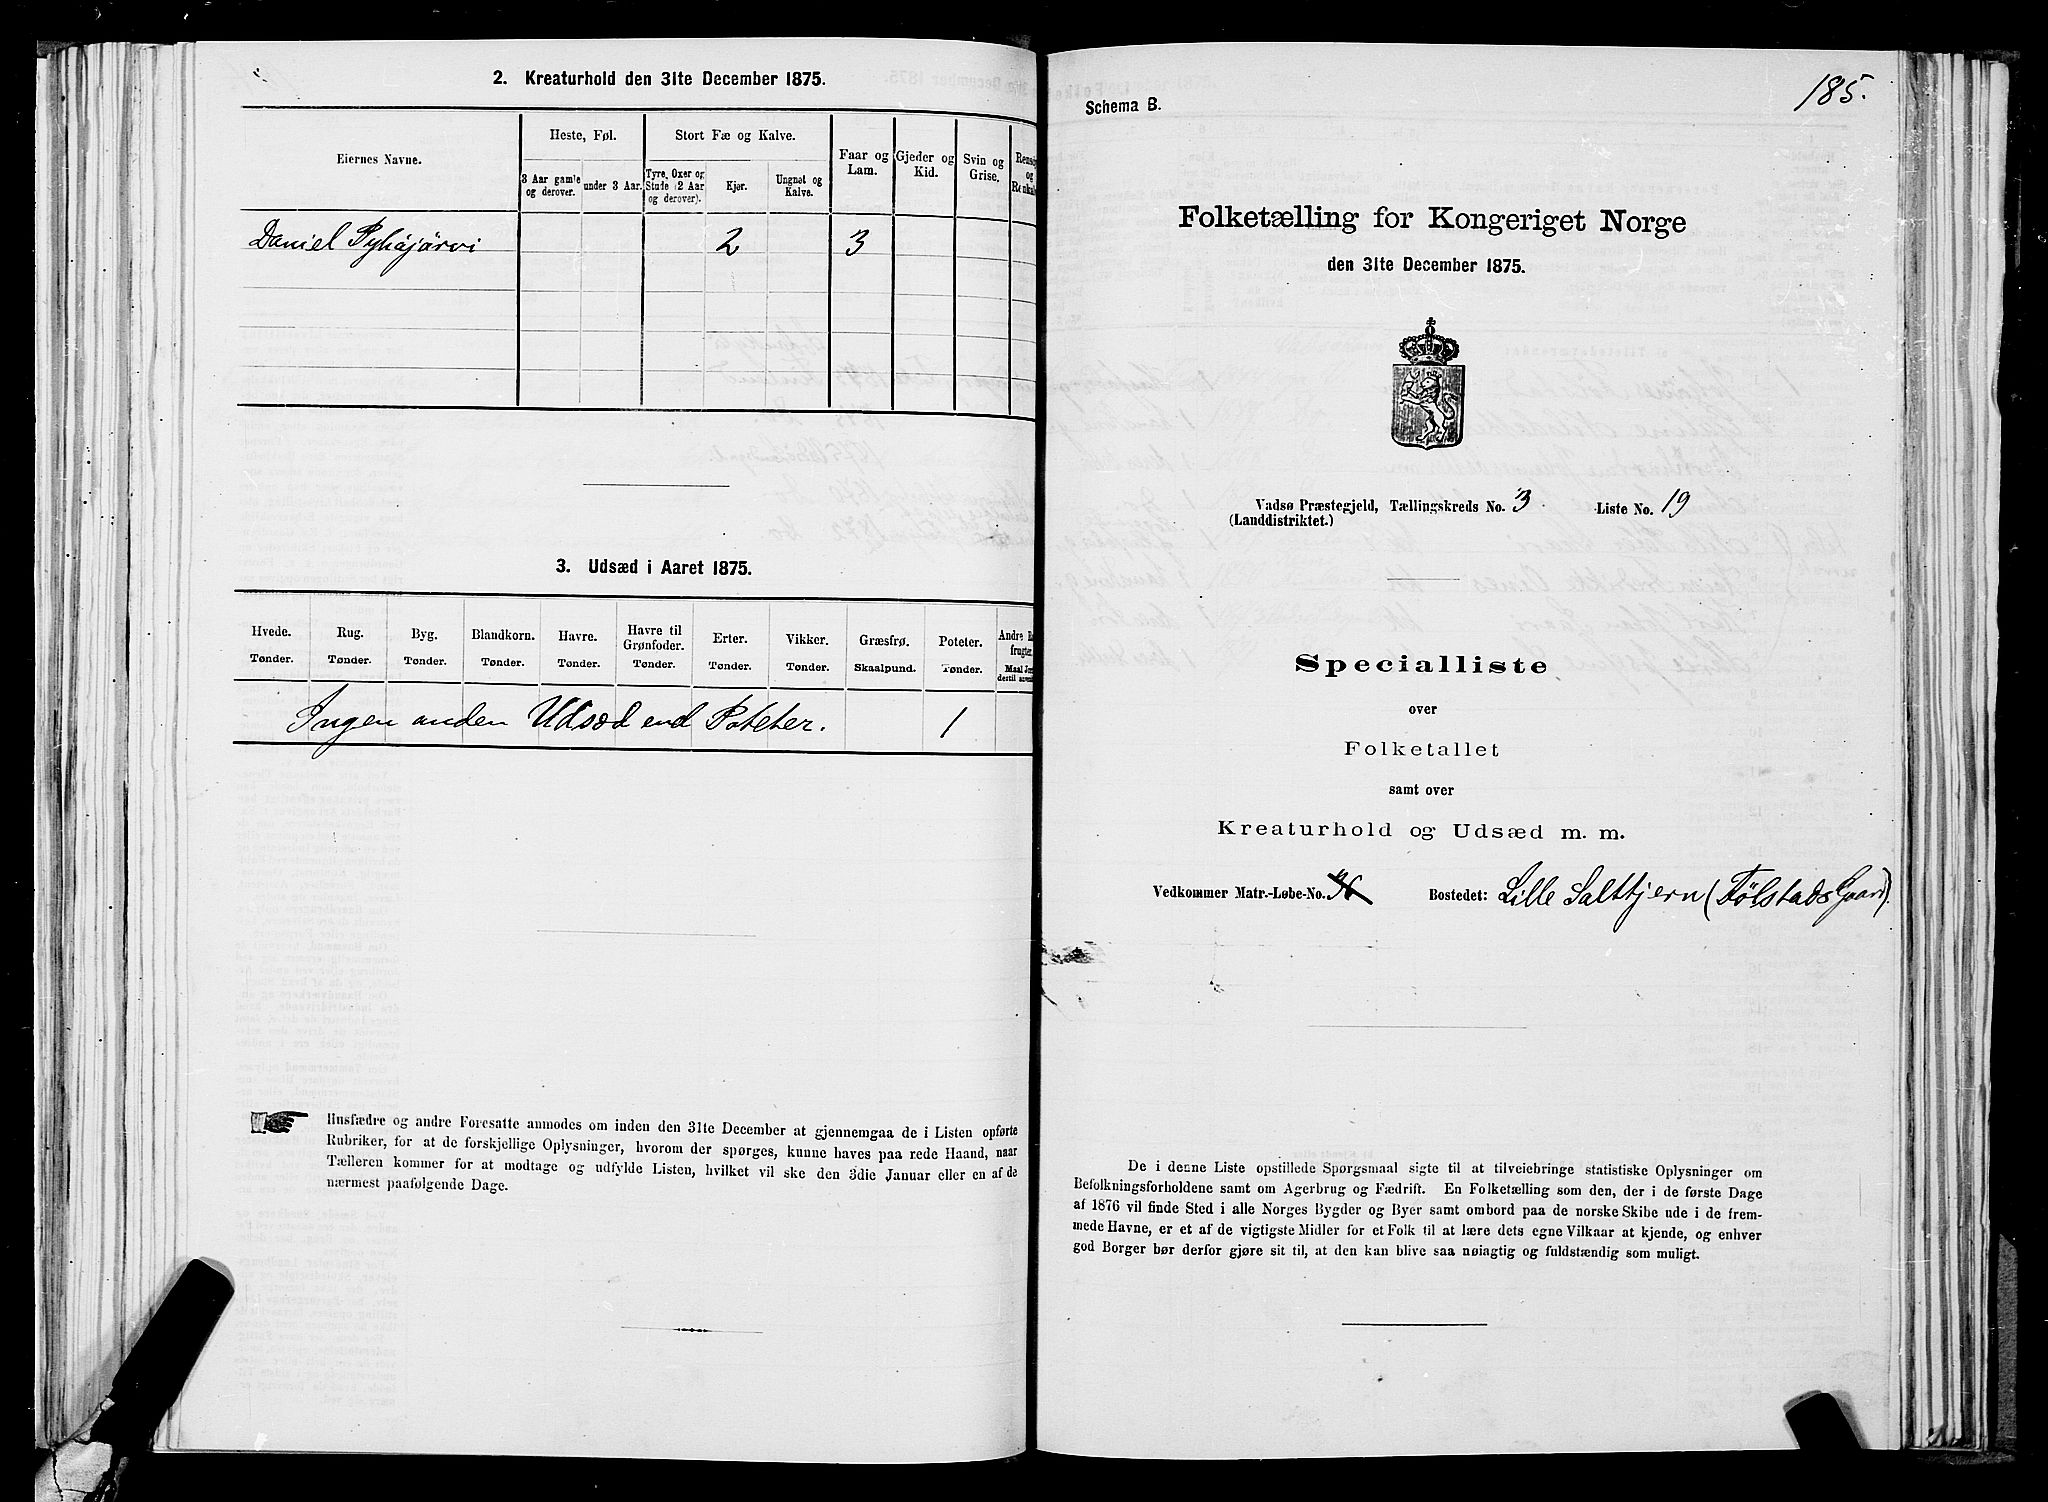 2. Kreaturhold den 31te December 1875.
Eiernes Navne.
Heste, Føl.
Stort Fæ og Kalve.
Faar og Lam.
Gjeder og Kid.
Svin og Grise.
og
3 Aar gamle og derover.
under 3 Aar.
Tyre, Oxer og Stude (2 Aar og derover).
Kjør.
Ungnøt og Kalve.
Daniel Pyhäjärvi 2 3
3. Udsæd i Aaret 1875.
Hvede. Rug. Byg. Blandkorn. Havre. Havre til Grønfoder. Erter. Vikker. Græsfrø. Poteter. Andre
Tønder. Tønder. Tønder. Tønder. Tønder. Tønder. Tønder. Tønder. Skaalpund. Tønder. Maal
Ingen anden Udsæd end Poteter. 1
Husfædre og andre Foresatte anmodes om inden den 31te December at gjennemgaa de i Listen opførte
Rubriker, for at de forskjellige Oplysninger, hvorom der spørges, kunne haves paa rede Haand, naar
Tælleren kommer for at modtage og udfylde Listen, hvilket vil ske den 3die Januar eller en af de
nærmest paafølgende Dage.
185.
Schema B.
Folketælling for Kongeriget Norge
den 31te December 1875.
Vadsø Præstegjeld, Tællingskreds No. 3. Liste No. 19
(Landdistriktet.)
Specialliste
over
Folketallet
samt over
Kreaturhold og Udsæd m. m.
Vedkommer Matr.-Løbe-No. Bostedet: Lille Saltkjern (Tølstads Gaard).
De i denne Liste opstillede Spørgsmaal sigte til at tilveiebringe statistiske Oplysninger om
Befolkningsforholdene samt om Agerbrug og Fædrift. En Folketælling som den, der i de første Dage
af 1876 vil finde Sted i alle Norges Bygder og Byer samt ombord paa de norske Skibe ude i de frem-
mede Havne, er et af de vigtigste Midler for et Folk til at lære dets egne Vilkaar at kjende, og enhver
god Borger bør derfor gjøre sit til, at den kan blive saa nøiagtig og fuldstændig som muligt.